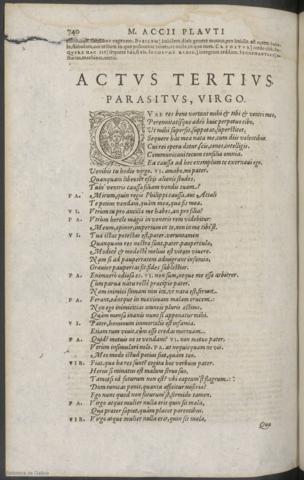 740 M. ACCII PLAVTI
ACTVS TERTIVS.
PARASITVS, VIRGO.
QVAE res bene vortat mihi & tibi & ventri meo,
Perennitatisque adeo huic perpetuo cibo,
Vt mihi supersit, suppetat, superstitet,
Sequere hac mea nata me, cum diis volentibus.
Cui rei opera detur scis, tenes, intelligis.
Communicavi tecum consilia omnia.
Ea caussa ad hoc exemplum te exornavi ego.
Venibis tu hodie virgo. VI. amabo, mi pater,
Quanquam libenter escis alienis studes,
Tuin' ventris caussa filiam vendis tuam?
PA. Mirum, quin regis Philippi caussa, aut Attali
Te potius vendam, quàm mea, quæ sis mea.
VI. Vtrum tu pro ancilla me habes, an pro filia?
PA. Vtrum hercle magis in ventris rem videbitur.
Meum, opinor, imperium in te, non in me tibi'st.
VI. Tua istæc potestas est, pater. verumtamen
Quanquam res nostra sunt, pater, pauperculæ,
Modicè & modestè melius est vitam vivere.
Nam si ad paupertatem admigrant infamiæ,
Gravior paupertas fit, fides sublestior.
PA. Enimvero odiosa es. VI. non sum, neque me esse arbitror,
Cùm parva natu rectè præcipio patri.
Nam inimici famam non ita, ut nata est ferunt.
PA. Ferant, eántque in maximam malam crucem:
Non ego inimicitias omneis pluris æstimo,
Quàm mensa inanis nunc si apponatur mihi.
VI. Pater, hominum immortalis est infamia.
Etiam tum vivit, cùm esse credas mortuam.
PA. Quid? metuis ne te vendam? VI. non metuo pater.
Verùm insimulari nolo. PA. at nequicquam ne vis.
Meo modo istuc potius fiet, quàm tuo.
VIR. Fiat. quæ hæ res sunt? cogita hoc verbum pater.
Herus si minatus est malum servo suo,
Tametsi id futurum non est: ubi captum'st flagrum,
Dum tunicas ponit, quanta afficitur miseria?
Ego nunc quod non futurum'st, formido tamen.
PA. Virgo atque mulier nulla erit quin sit mala,
Quæ præter sapiet, quàm placet parentibus.
VIR. Virgo atque mulier nulla erit, quin sit mala,
Quæ